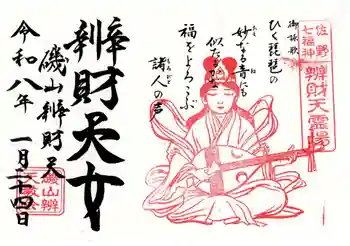 佐野七福神
辨財天霊場
御詠歌
ひく琵琶の
妙なる音にも
似たるかな
福をよろこぶ
諸人の声
辨財天女
磯山辨財天
令和八年
一月二十四日
磯山辨